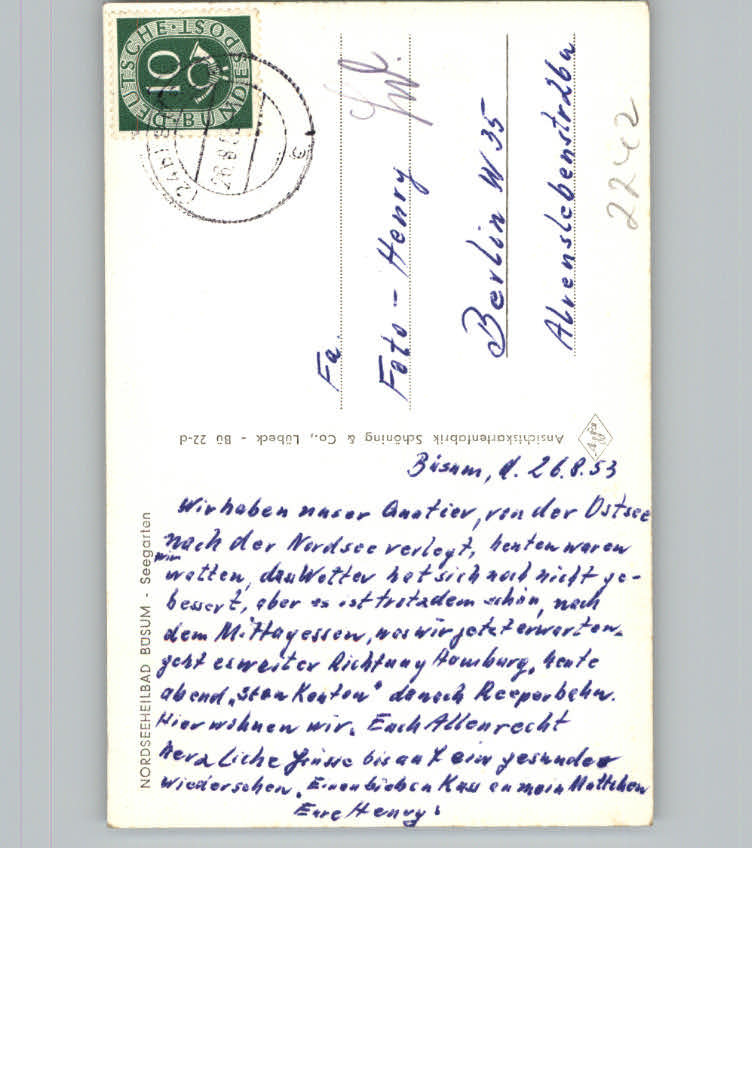 DEUTSCHE BUNDESPOST
10
26.8.53
c
Fa.
Foto - Henry
Berlin W 35
Alvenslebenstr 26a
2242
Ansichtskartenfabrik Schöning & Co., Lübeck - Bü 22-d
NORDSEEHEILBAD BÜSUM - Seegarten
Büsum, d. 26.8.53
Wir haben unser Quatier, von der Ostsee
nach der Nordsee verlegt, heute waren
wir
watten, das Wetter hat sich noch nicht ge-
bessert, aber es ist trotzdem schön, nach
dem Mittagessen, was wir jetzt erwarten,
geht es weiter Richtung Hamburg, heute
abend "Stan Kenton" danach Reeperbahn.
Hier wohnen wir. Euch Allen recht
herzliche Grüsse bis auf ein gesundes
wiedersehen. Einen lieben Kuss an mein Muttchen
Eure Henry!